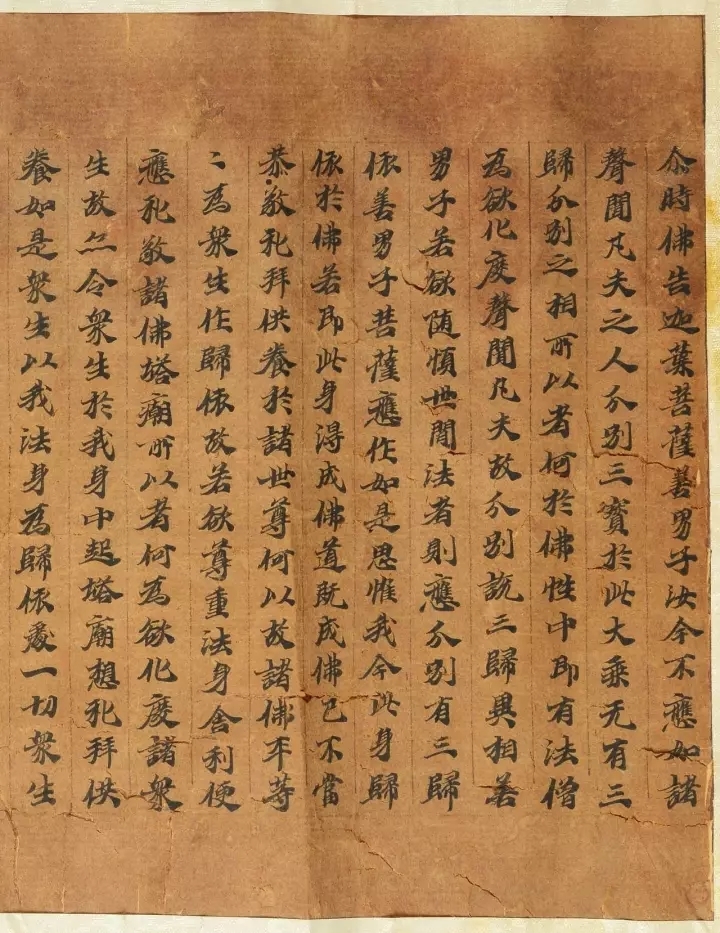 尒時佛告迦葉菩薩善男子汝今不應如諸
聲聞凡夫之人分別三寶於此大乘无有三
歸分別之相所以者何於佛性中即有法僧
為欲化度聲聞凡夫故分別說三歸異相善
男子若欲随順世間法者則應分別有三歸
依善男子菩薩應作如是思惟我今此身歸
依於佛若即此身得成佛道既成佛已不當
恭敬礼拜供養於諸世尊何以故諸佛平等
〻為衆生作歸依故若欲尊重法身舍利便
應礼敬諸佛塔廟所以者何為欲化度諸衆
生故亦令衆生於我身中起塔廟想礼拜供
養如是衆生以我法身為歸依處一切衆生